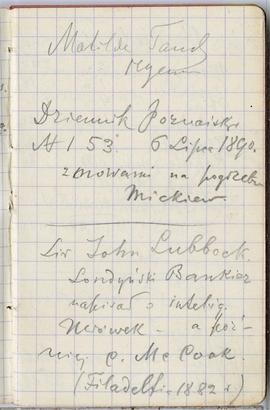 Matilde
Dziennik Poznański
№ 153. 6 Lipca 1890.
z mowami na pogrzebie
Mickiew.
Sir John Lubbock.
Londyński Bankier
napisał o intelig.
Mrówek – a póź-
niej p. Mc Cook.
(Filadelf. 1882 r)